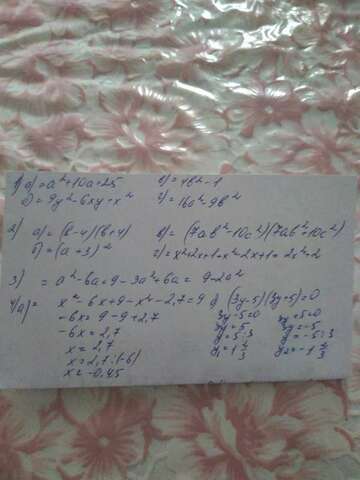 1) а) = a²+10a+25 в) = 4b²-1
б) = 9y²-6xy+x² г) = 16a²-9b²
2) а) = (b-4)(b+4) в) = (7ab²-10c²)(7ab²+10c²)
б) = (a+3)² г) = x²+2x+1+x²-2x+1 = 2x²+2
3) = a²-6a+9-3a²+6a = 9-2a²
4) а) = x²-6x+9-x²-2,7=9 б) (3y-5)(3y+5)=0
-6x = 9-9+2,7 3y-5=0 3y+5=0
-6x = 2,7 3y=5 3y=-5
x = 2,7 y=5:3 y=-5:3
x = 2,7:(-6) y₁=1 2/3 y₂=-1 2/3
x = -0,45